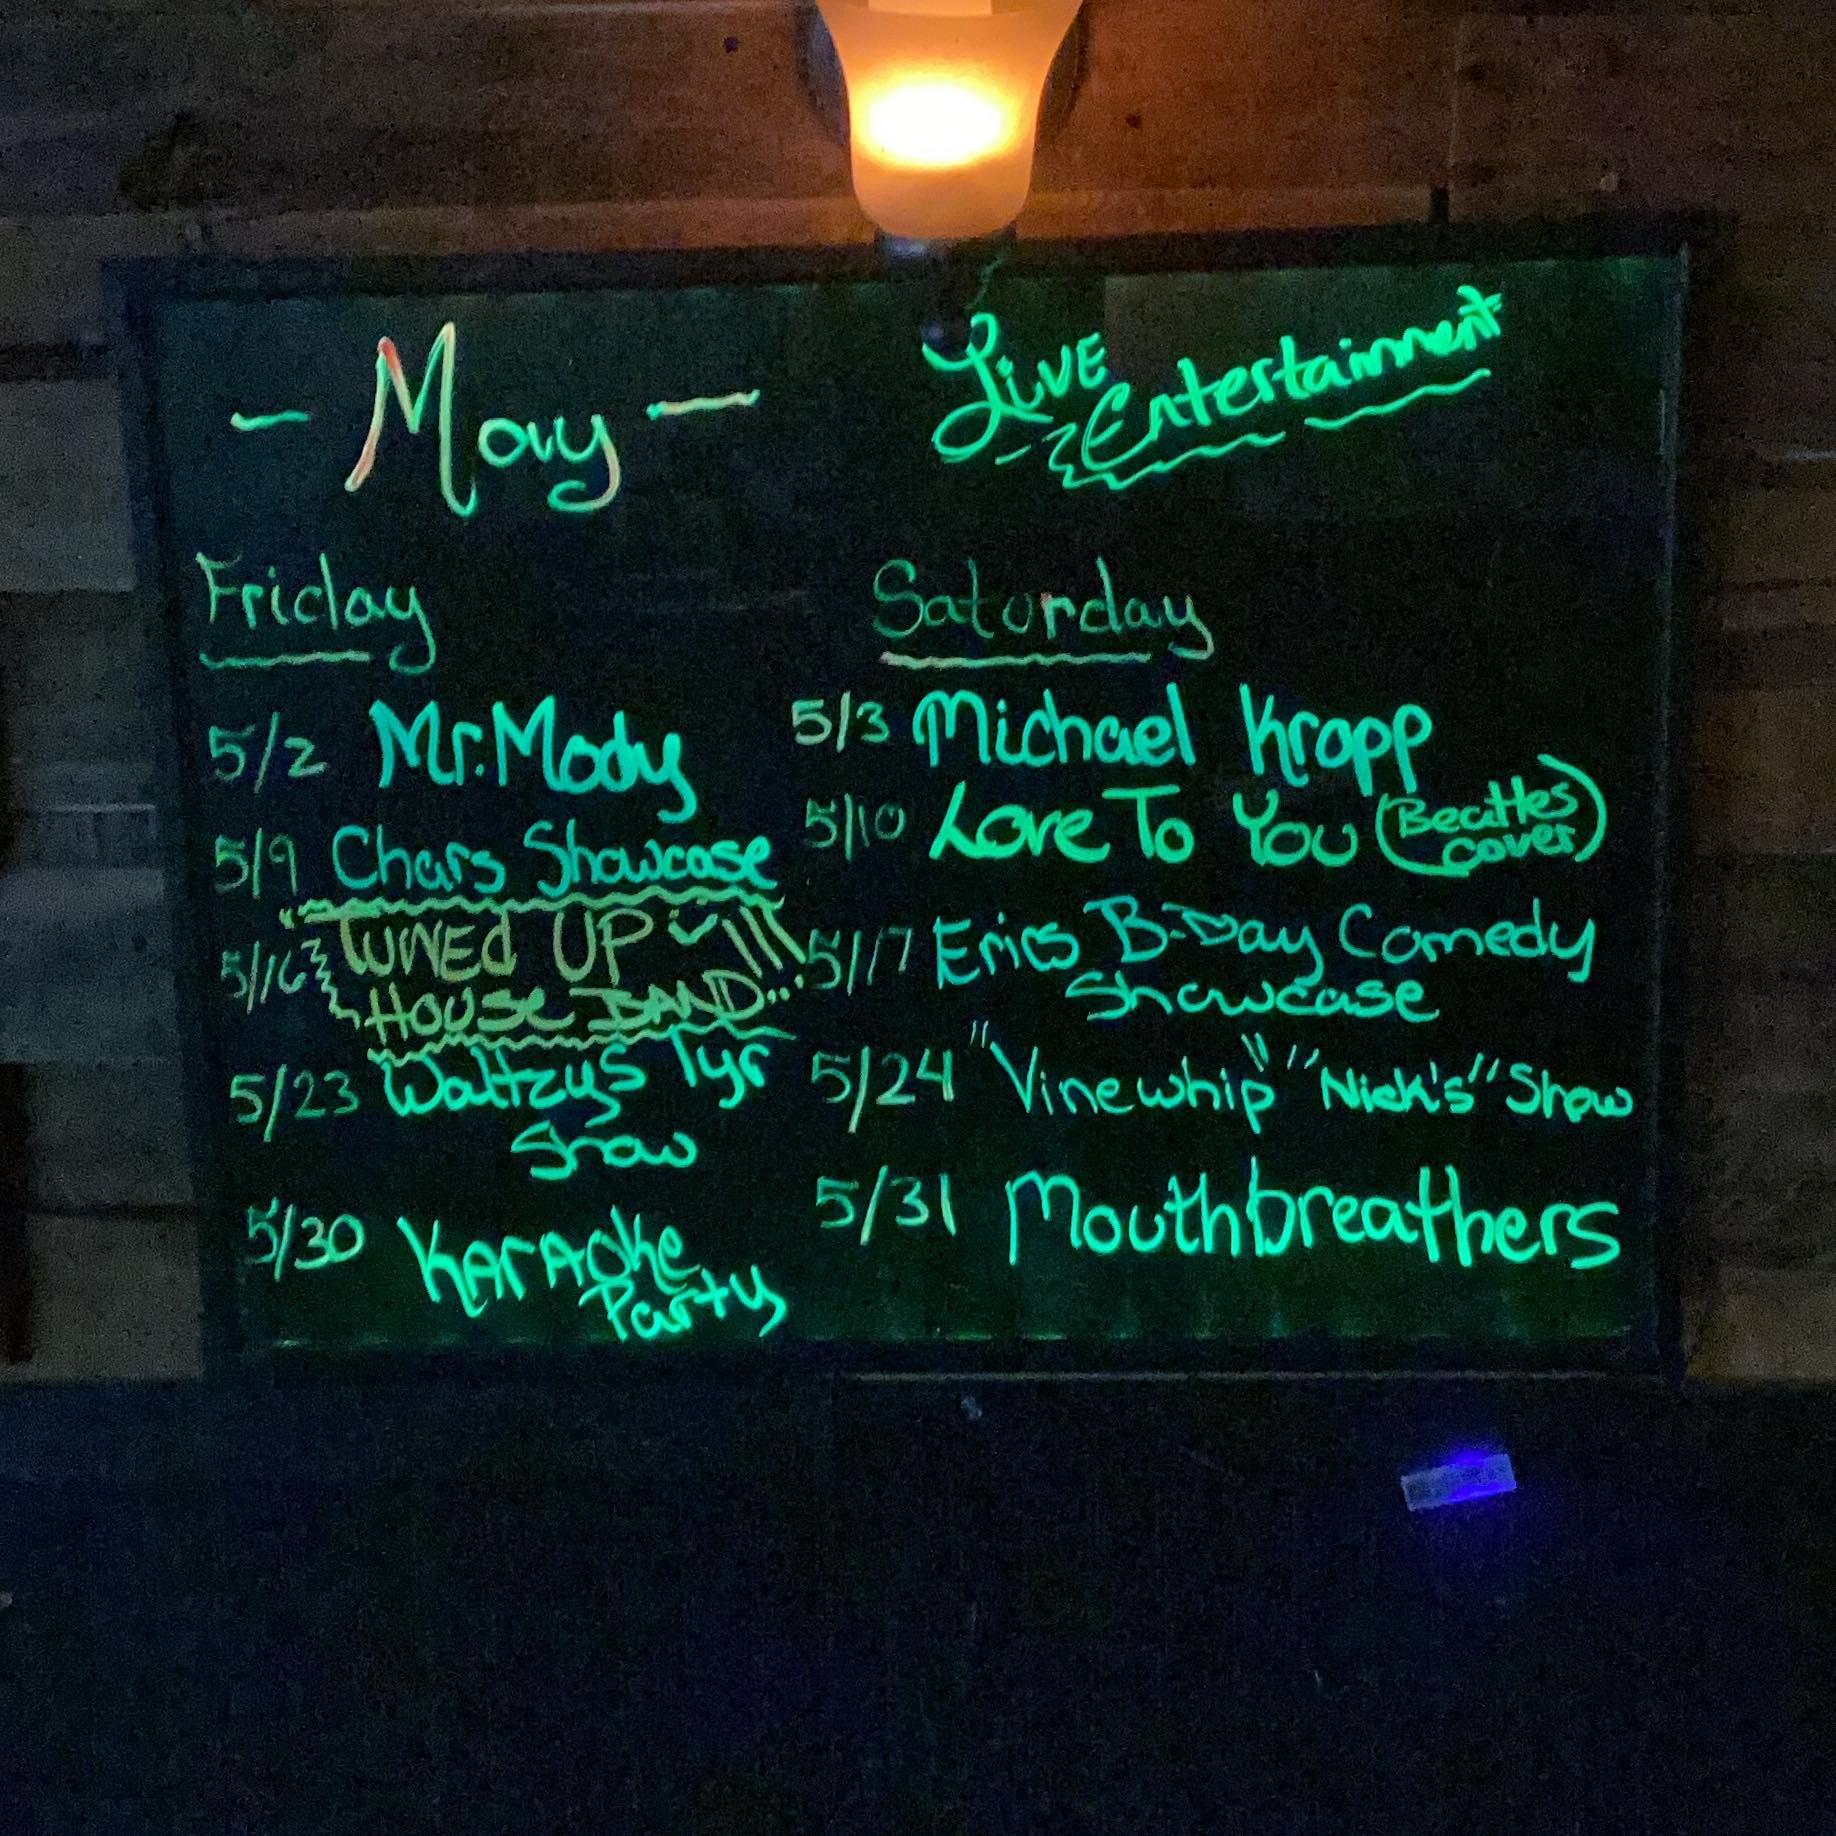 - May -
Live
Entertainment
Friday
5/2 Mr. Mody
5/9 Chars Showcase
5/16 TUNED UP
HOUSE BAND...
5/23 Waltzys 1yr
Show
5/30 Karaoke
Party
Saturday
5/3 Michael Kropp
5/10 Love To You (Beatles
cover)
5/17 Erics B-Day Comedy
Showcase
5/24 "Vinewhip" "Nick's" Show
5/31 Mouthbreathers